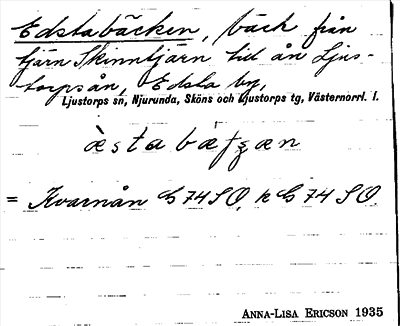 Edstabäcken, bäck från
tjärn Skinntjärn till ån Ljus-
torpsån, Edsta by,
Ljustorps sn, Njurunda, Sköns och Ljustorps tg, Västernorrl. l.
= Kvarnån G 74 SO, k G 74 SO.
ANNA-LISA ERICSON 1935